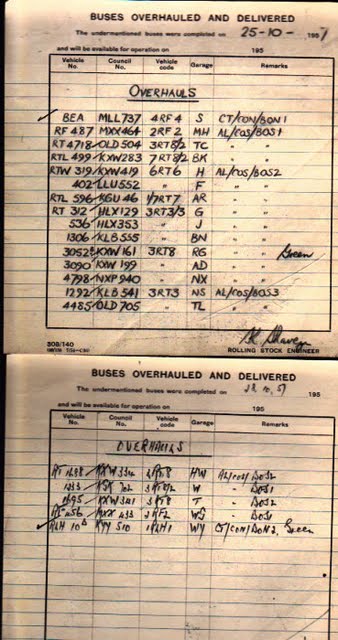 BUSES OVERHAULED AND DELIVERED
The undermentioned buses were completed on 25-10- 1957
and will be available for operation on 195
Vehicle No. Council No. Vehicle code Garage Remarks
OVERHAULS
BEA MLL737 4RF4 S CT/CON/BON1
RF 487 MXX464 2RF2 MH AL/COS/BOS1
RT 4718 OLD 504 3RT8/2 TC " "
RTL 499 KXW283 7RT8/2 BK " "
RTW 319 KXW419 6RT6 H AL/COS/BOS2
402 LLU552 " F " "
RTL 596 KGU 46 1/7RT7 AR " "
RT 312 HLX129 3RT3/3 G " "
536 HLX353 " J " "
1306 KLB 555 " BN " "
3052 KXW 161 3RT8 RG " " Green
3090 KXW 199 " AD " "
4798 NXP 940 " NX " "
1292 KLB 541 3RT3 NS AL/COS/BOS3
4485 OLD 705 " TL " "
308/140
ROLLING STOCK ENGINEER
BUSES OVERHAULED AND DELIVERED
The undermentioned buses were completed on 57 195
and will be available for operation on 195
Vehicle No. Council No. Vehicle code Garage Remarks
OVERHAULS
RT KXW 334 3RT8 HW AL/COS/BOS2
702 W " BOS1
KXW 341 3RT8 T " BOS2
RF 456 MXX 433 2RF2 WS " BOS1
RLH 10 KYY 510 1RLH1 WY CT/CON/BON2, Green